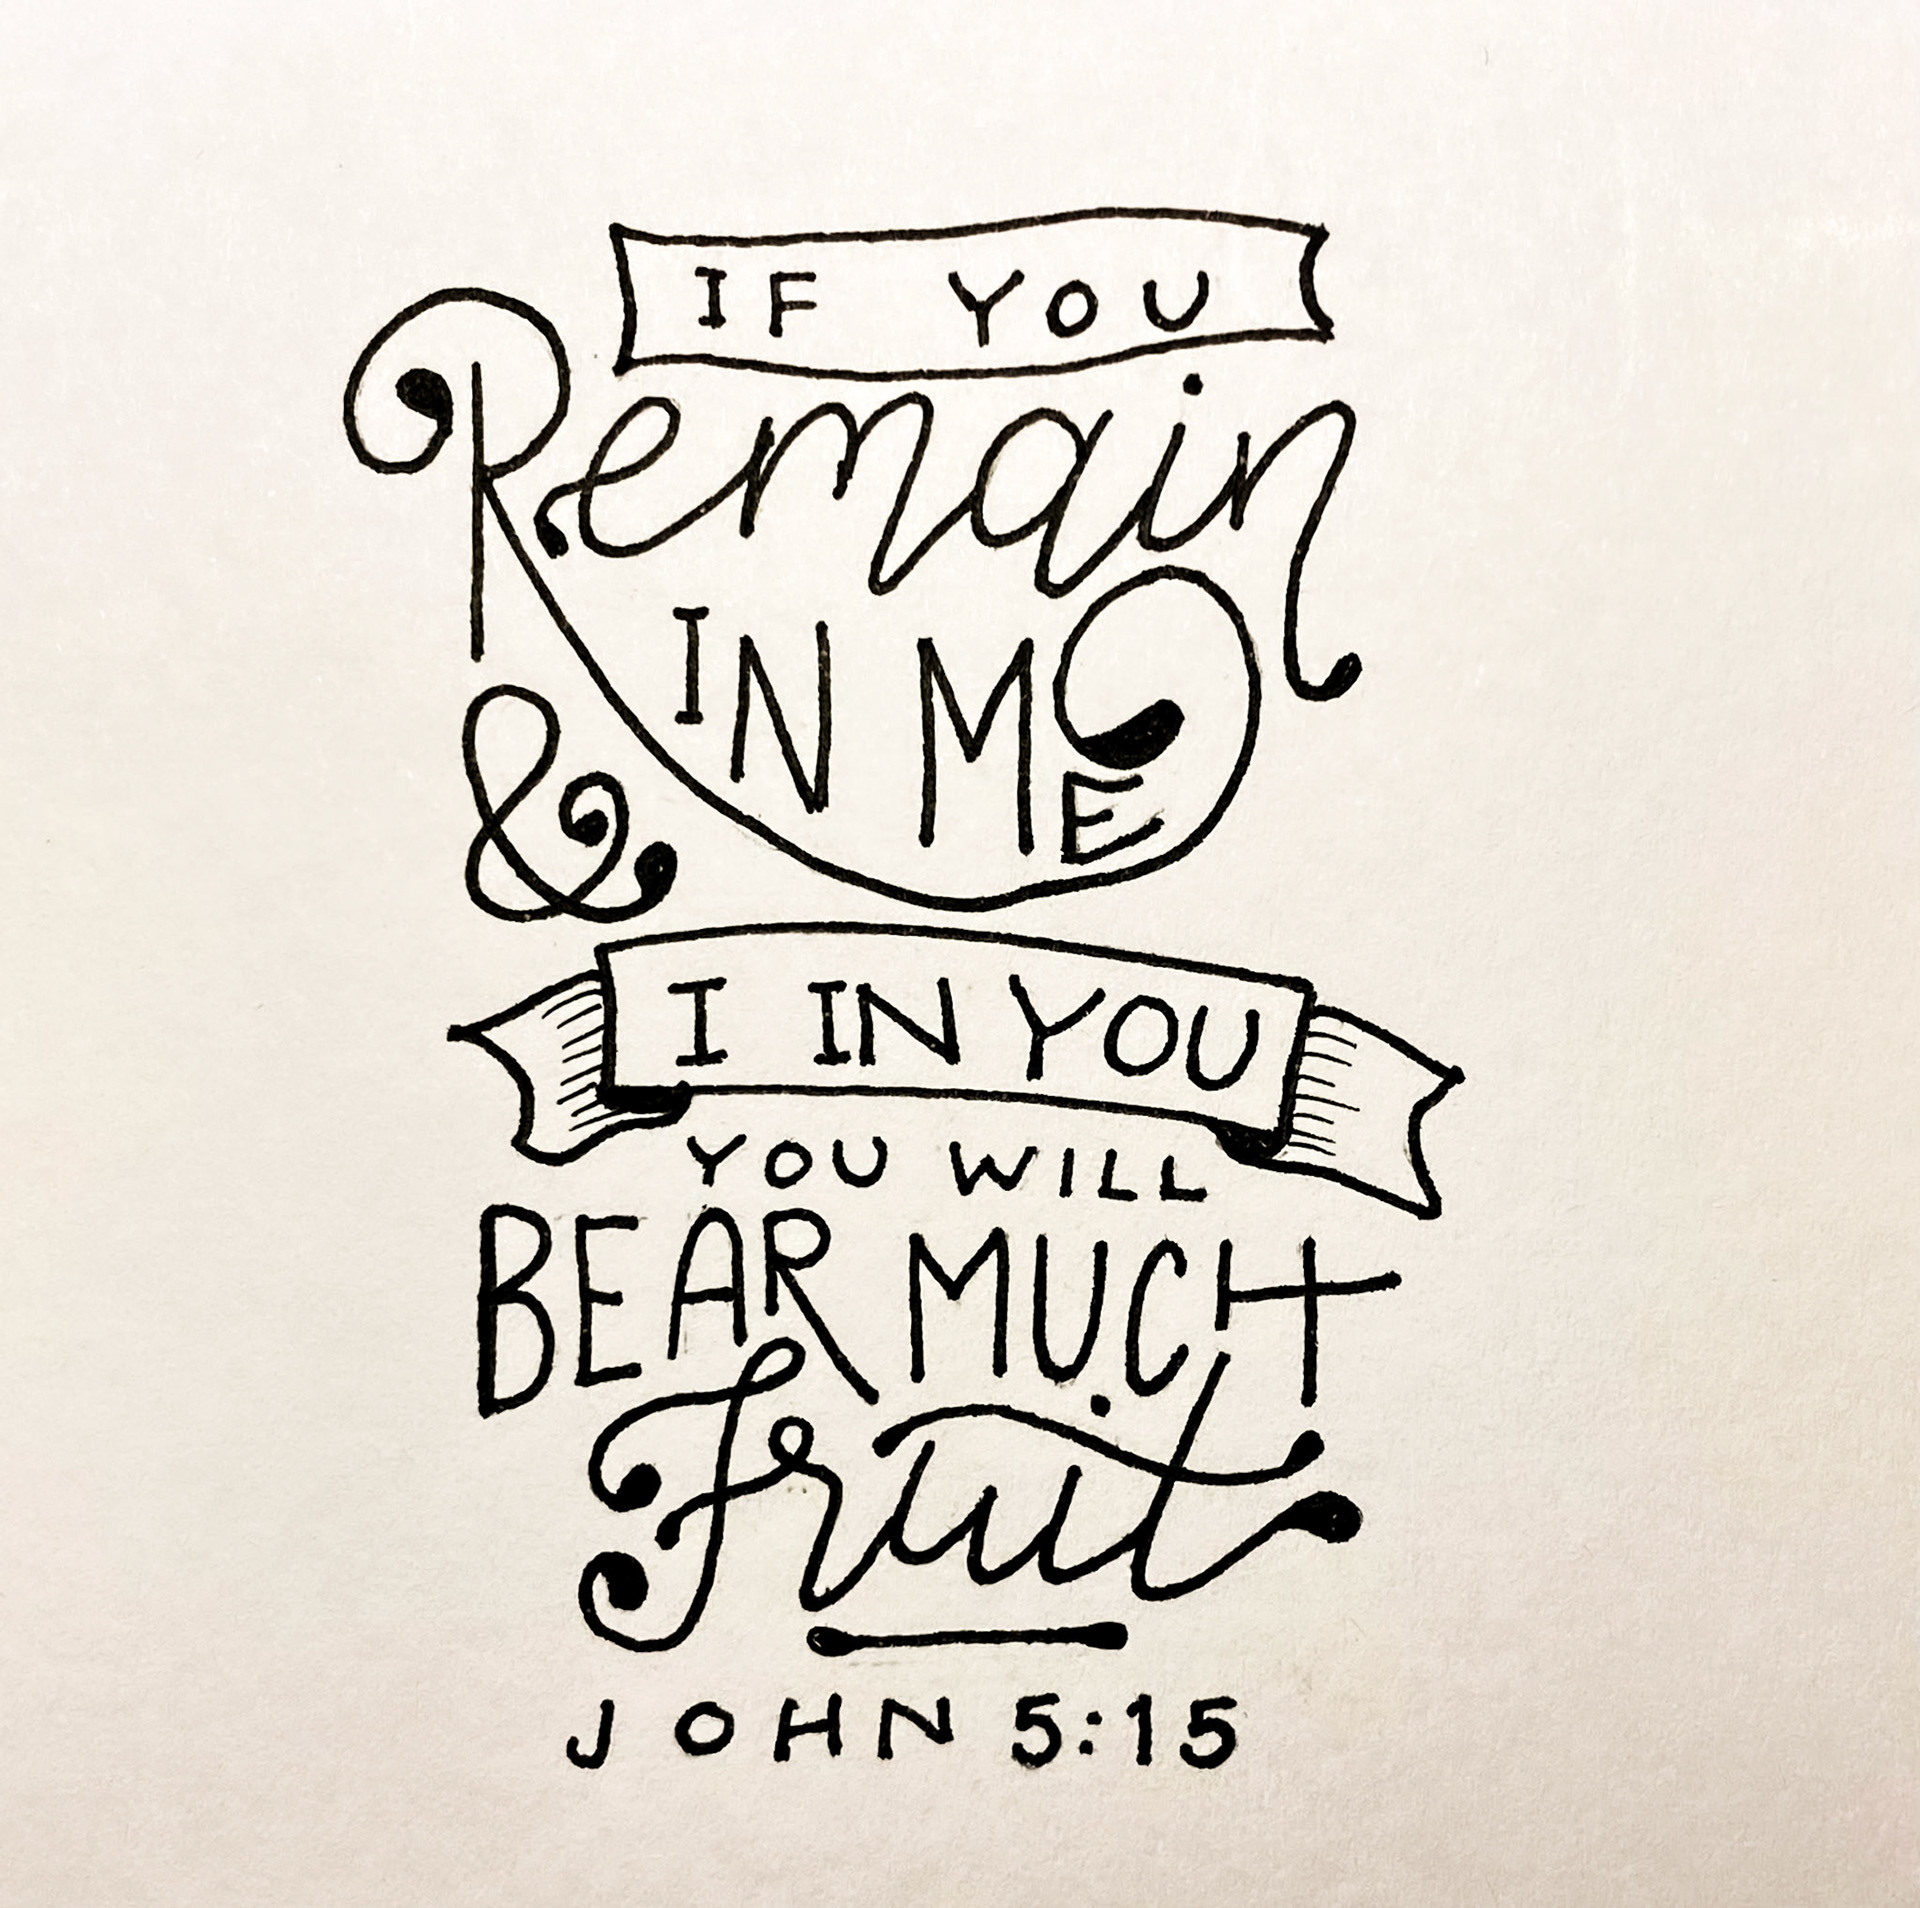 IF YOU
Remain
IN ME
&
I IN YOU
YOU WILL
BEAR MUCH
Fruit
JOHN 5:15